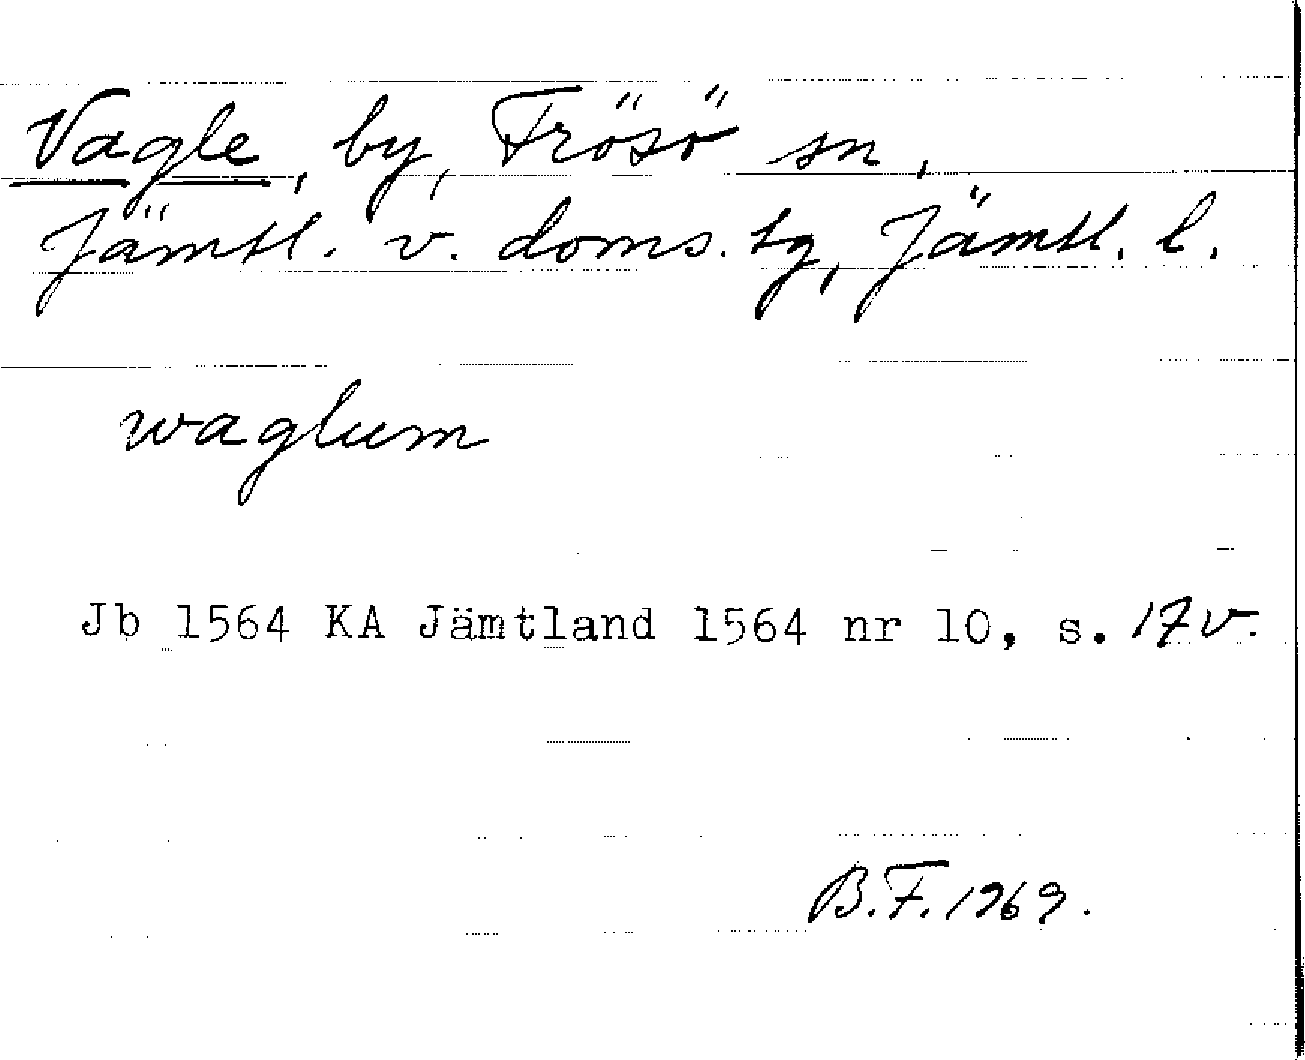 Vagle, by, Frösö sn,
Jämtl. v. doms. tg, Jämtl. l.
waglum
Jb 1564 KA Jämtland 1564 nr 10, s. 17v.
B.F. 1969.